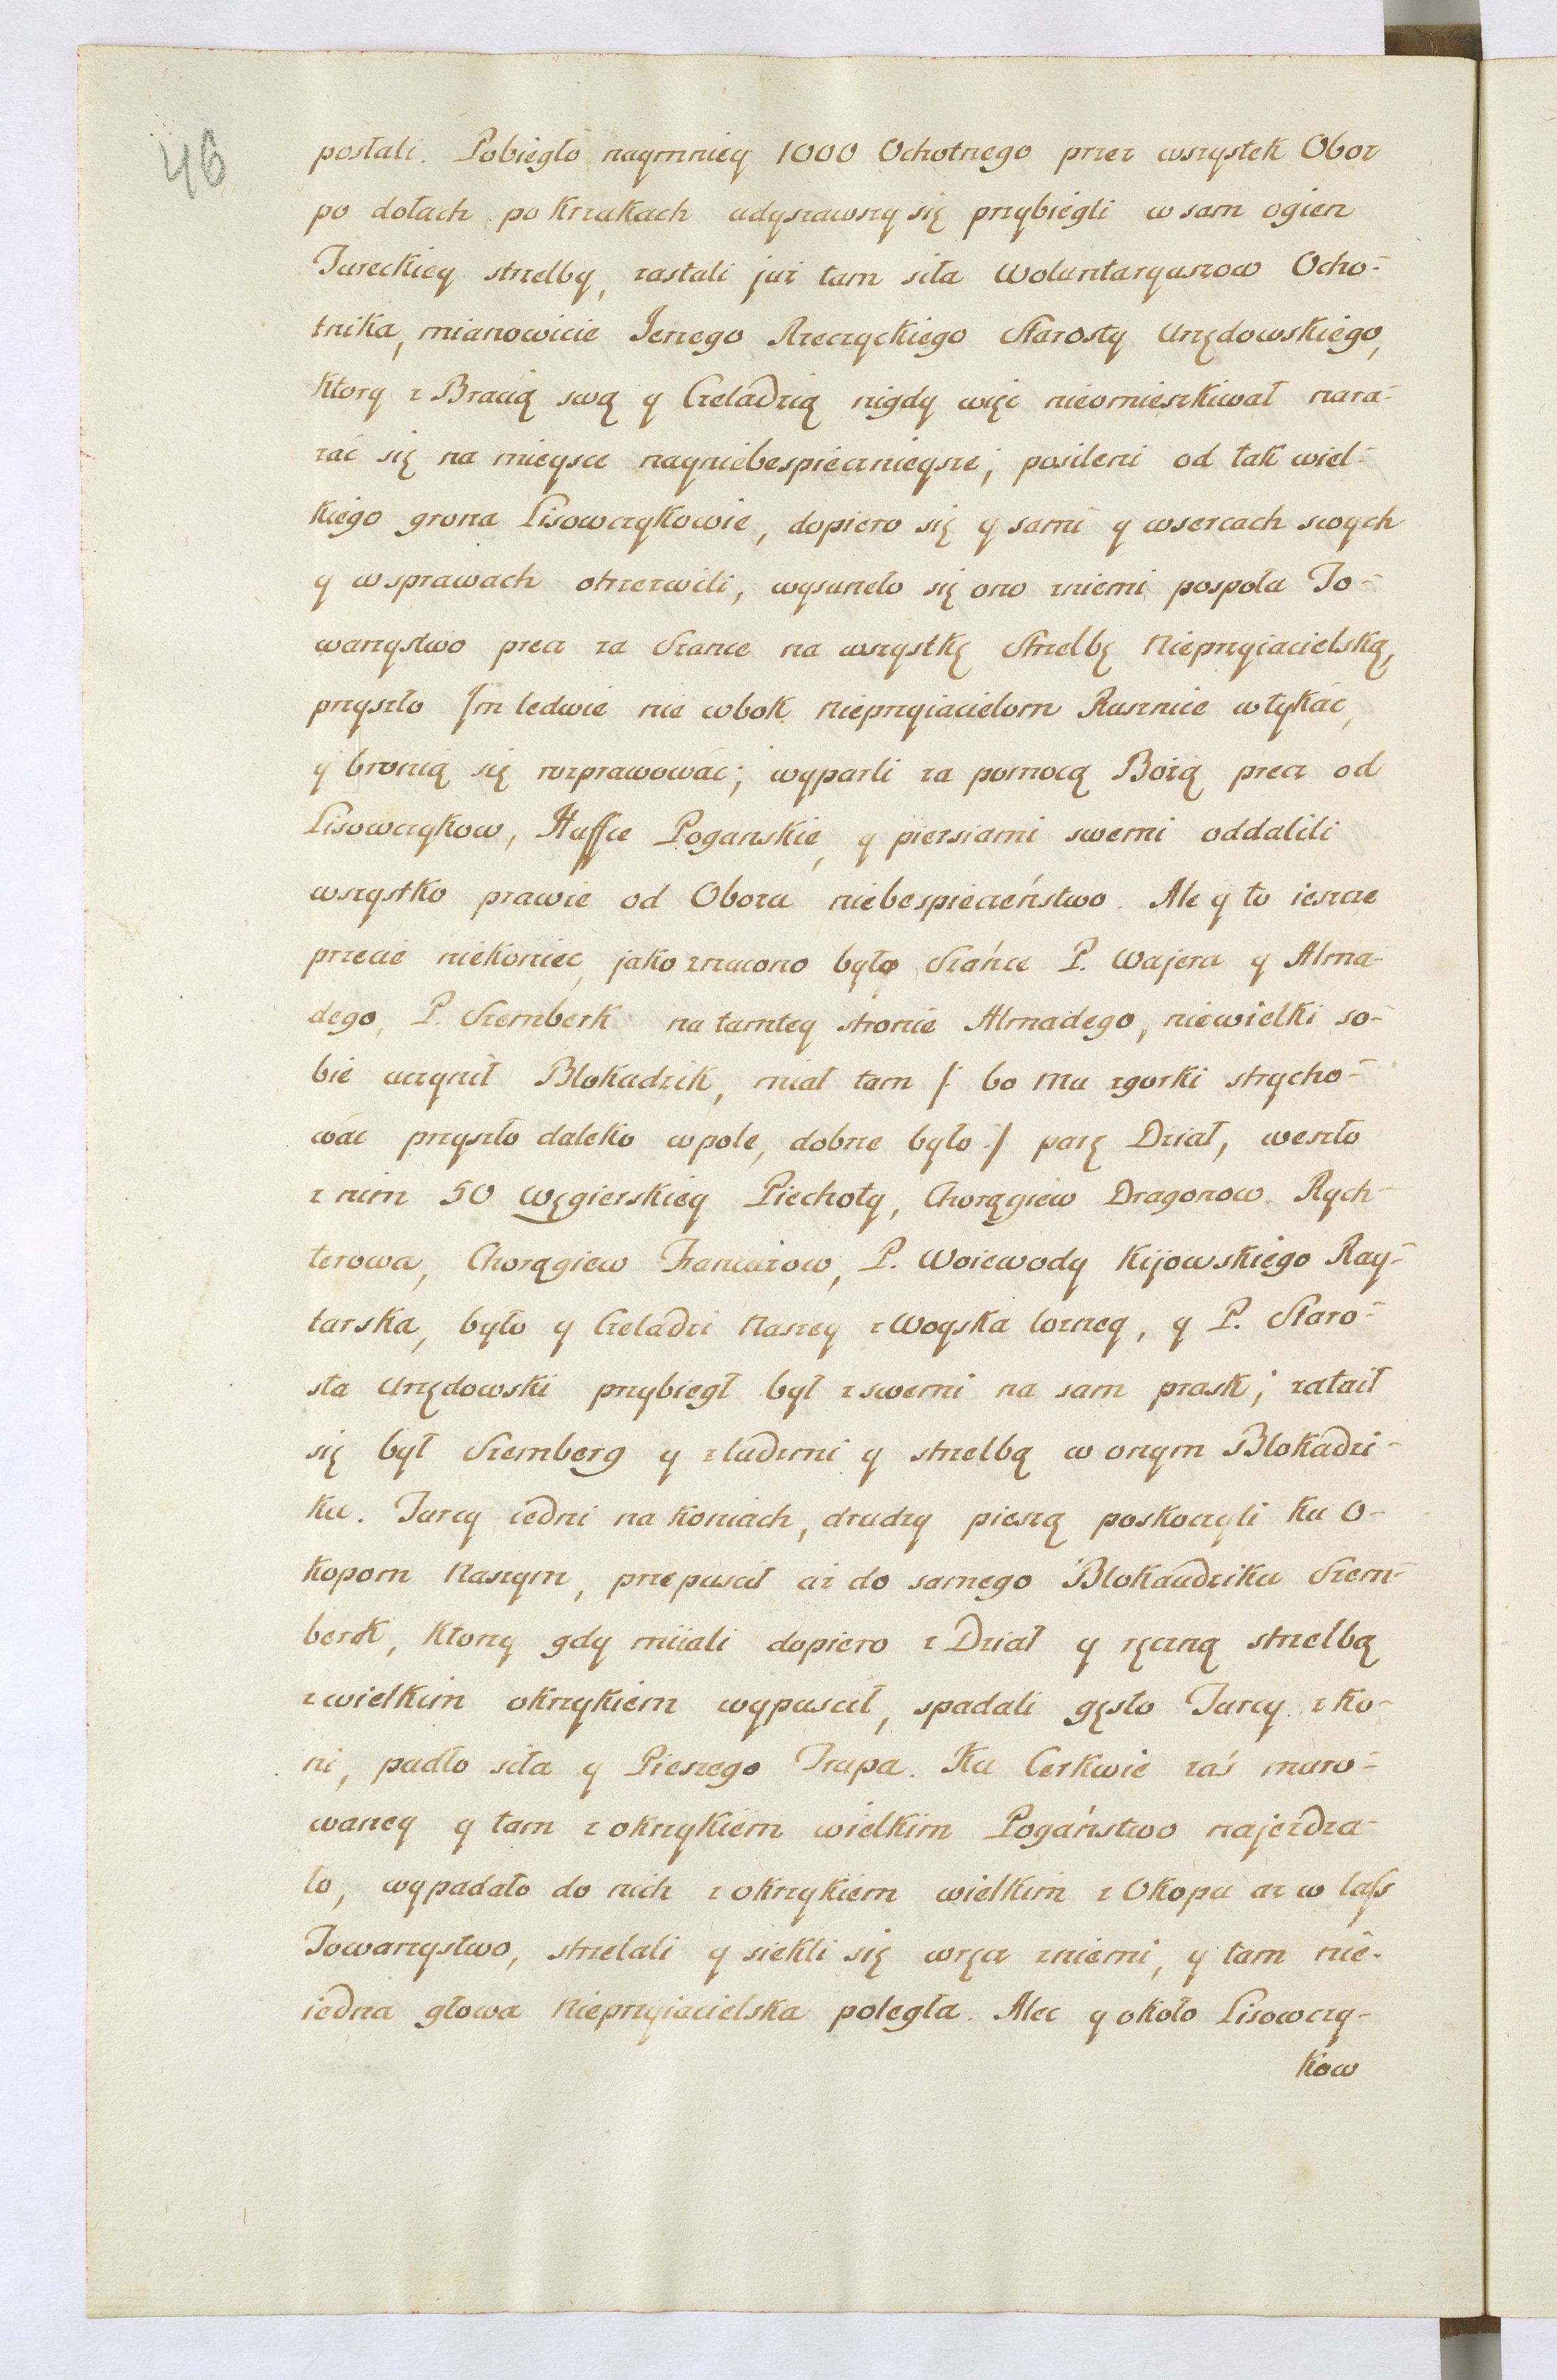 46
posłali. Pobiegło naymniey 1000 Ochotnego przez wszystek Oboz
po dołach po krzakach udyszawszy się przybiegli w sam ogien
Tureckiey strzelby, zastali już tam siła Woluntaryuszow Ocho-
tnika, mianowicie Jerzego Rzeczyckiego Starosty Urzędowskiego,
ktory z Bracią swą y Czeladzią nigdy więc nieomieszkiwał nara-
zać się na mieysce nayniebespiecznieysze; posileni od tak wiel-
kiego grona Lisowczykowie, dopiero się y sami y wsercach swych
y wsprawach otrzezwili, wysuneło się ono zniemi pospołu To-
warzystwo precz za Szance na wszystkę Strzelbę Nieprzyiacielską,
przyszło Jm ledwie nie wbok Nieprzyiacielom Rusznice wtykác,
y bronią się rozprawowác; wyparli za pomocą Bożą precz od
Lisowczykow, Huffce Poganskie, y piersiami swemi oddalili
wszystko prawie od Obozu niebespieczeństwo. Ale y to ieszcze
przecie niekoniec, jako zrzucono było Szánce P. Wajera y Alma-
dego, P. Szemberk na tamtey stronie Almadego, niewielki so-
bie uczynił Blokadzik, miał tam /: bo Mu zgorki strycho-
wác przyszło daleko wpole, dobrze było :/ parę Dział, weszło
z nim 50 Węgierskiey Piechoty, Chorągiew Dragonow Rych-
terowa, Chorągiew Francuzow, P. Woiewody Kijowskiego Ray-
tarska, było y Czeladzi Naszey z Woyska lozney, y P. Staro-
sta Urzędowski przybiegł był zswemi na sam prask; zataił
się był Szemberg y zludzmi y strzelbą w onym Blokadzi-
ku. Turcy iedni na koniach, drudzy pieszą poskoczyli ku O-
kopom Naszym, przepuscił aż do samego Blokaudziku Szem-
berk, ktorzy gdy miiali dopiero z Dział y ręczną strzelbą
zwielkim okrzykiem wypuscił, spadali gęsto Turcy z ko-
ni, padło siła y Pieszego Trupa. Ku Cerkwie zaś muro-
waney y tam z okrzykiem wielkim Pogaństwo najeżdza-
ło, wypadało do nich z okrzykiem wielkim z Okopu az w lass
Towarzystwo, strzelali y siekli się wręcz zniemi, y tam nie-
iedna głowa Nieprzyiacielska poległa. Alec y około Lisowczy-
kow